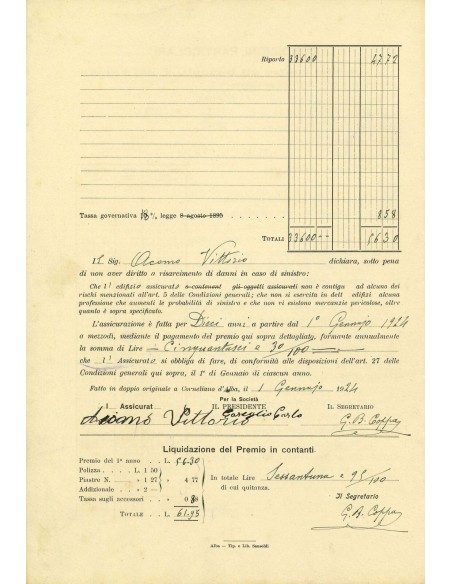 Riporto 33600 4772
Tassa governativa 18 %, legge 8 agosto 1895 858
TOTALE 33600 -- 5630
Il Sig. Acomo Vittorio dichiara, sotto pena
di non aver diritto a risarcimento di danni in caso di sinistro:
Che l' edifizi assicurat o contenent gli oggetti assicurati non è contigu ad alcuno dei
rischi menzionati all'art. 5 delle Condizioni generali; che non si esercita in dett edifizi alcuna
professione che aumenti le probabilità di sinistro e che non vi esistono mercanzie pericolose, oltre
quanto è sopra specificato.
L'assicurazione è fatta per Dieci anni a partire dal 1° Gennajo 1924
a mezzodì, mediante il pagamento del premio qui sopra dettagliato, formante annualmente
la somma di Lire Cinquantasei e 30/100
che l' Assicurato si obbliga di fare, di conformità alle disposizioni dell'art. 27 delle
Condizioni generali qui sopra, il 1° di Gennaio di ciascun anno.
Fatto in doppio originale a Cornéliano d'Alba, il 1 Gennajo 1924
Per la Società
I Assicurat IL PRESIDENTE IL SEGRETARIO
Acomo Vittorio Careglio Carlo G. B. Coppa
Liquidazione del Premio in contanti.
Premio del 1° anno . L. 56.30
Polizza . . . L. 1 50
Piastre N. » 1 27 » 4 77
Addizionale . . » 2 —
Tassa sugli accessori . » 0 88
TOTALE . . L. 61.95
In totale Lire Sessantuna e 95/100
di cui quitanza.
Il Segretario
G. B. Coppa
Alba — Tip. e Lib. Sansoldi